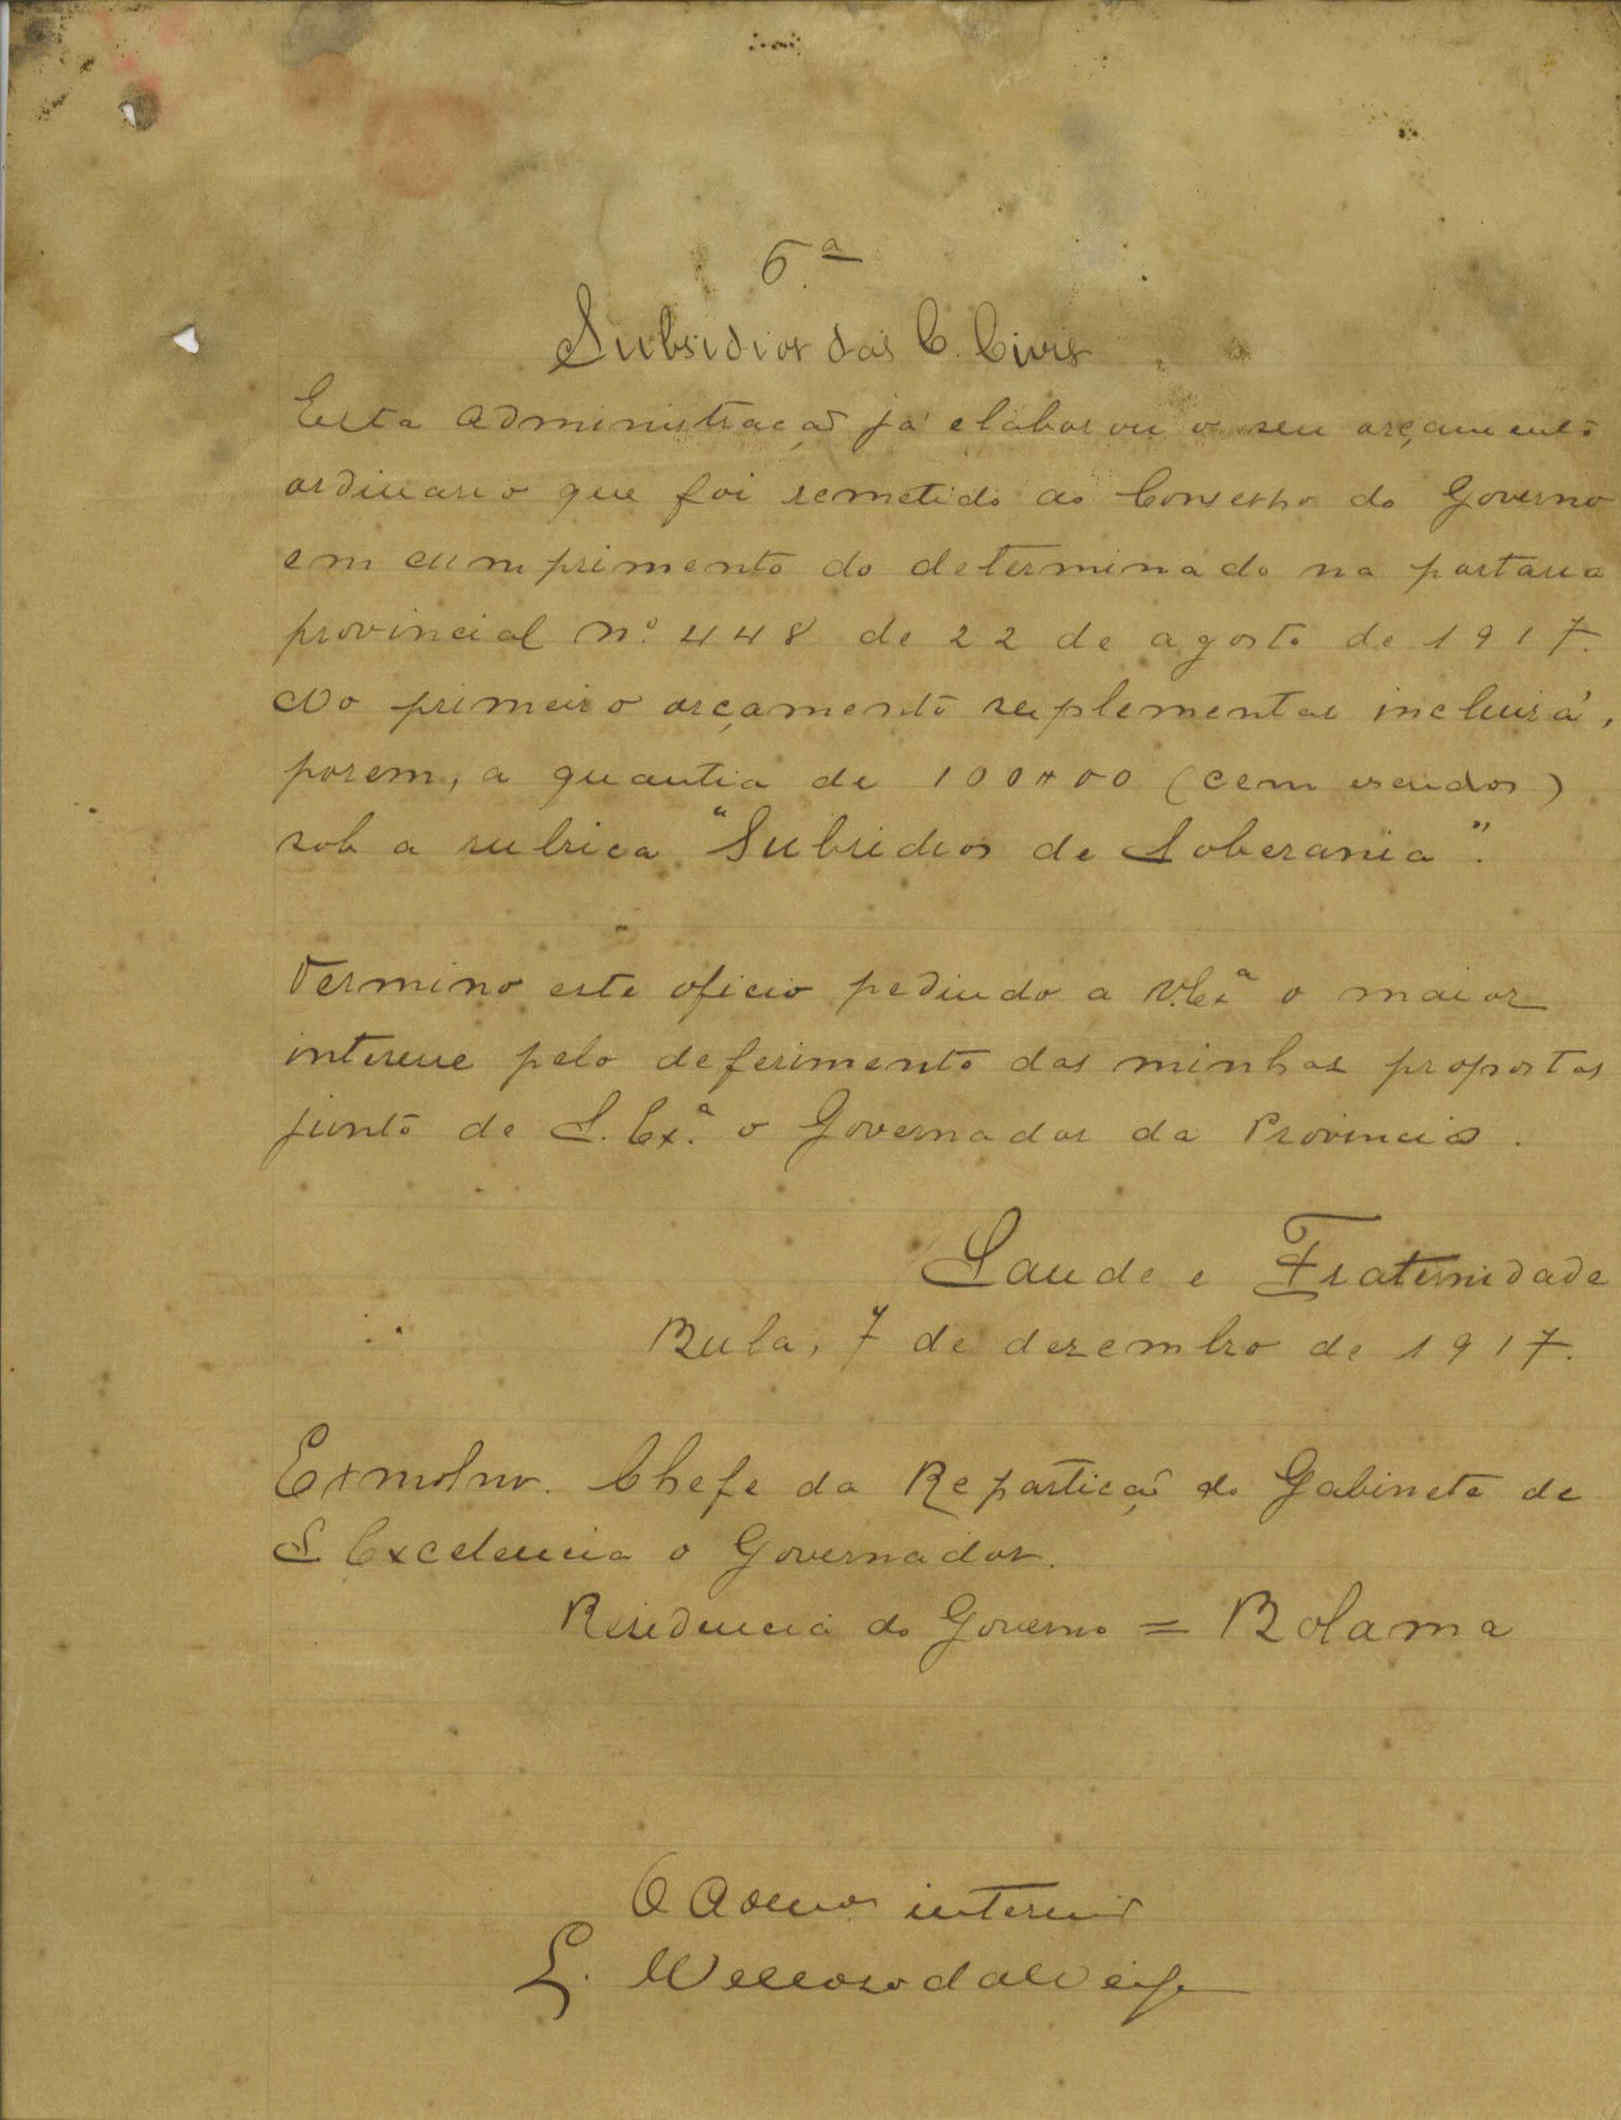 6.ª
Subsidios das C. Civis
Esta Administração já elaborou o seu orçamento
ordinario que foi remetido ao Conselho do Governo
em cumprimento do determinado na portaria
provincial nº 448 de 22 de agosto de 1917.
No primeiro orçamento suplementar incluirá,
porem, a quantia de 100$00 (cem escudos)
sob a rubrica "Subsidios de Soberania".
Termino este oficio pedindo a V. Exª o maior
interesse pelo deferimento das minhas propostas
junto de S. Ex.ª o Governador da Provincia.
Saude e Fraternidade
Bula, 7 de dezembro de 1917.
Exmo Snr. Chefe da Repartição do Gabinete de
S. Excelencia o Governador.
Residencia do Governo = Bolama
O Admor interino
L.